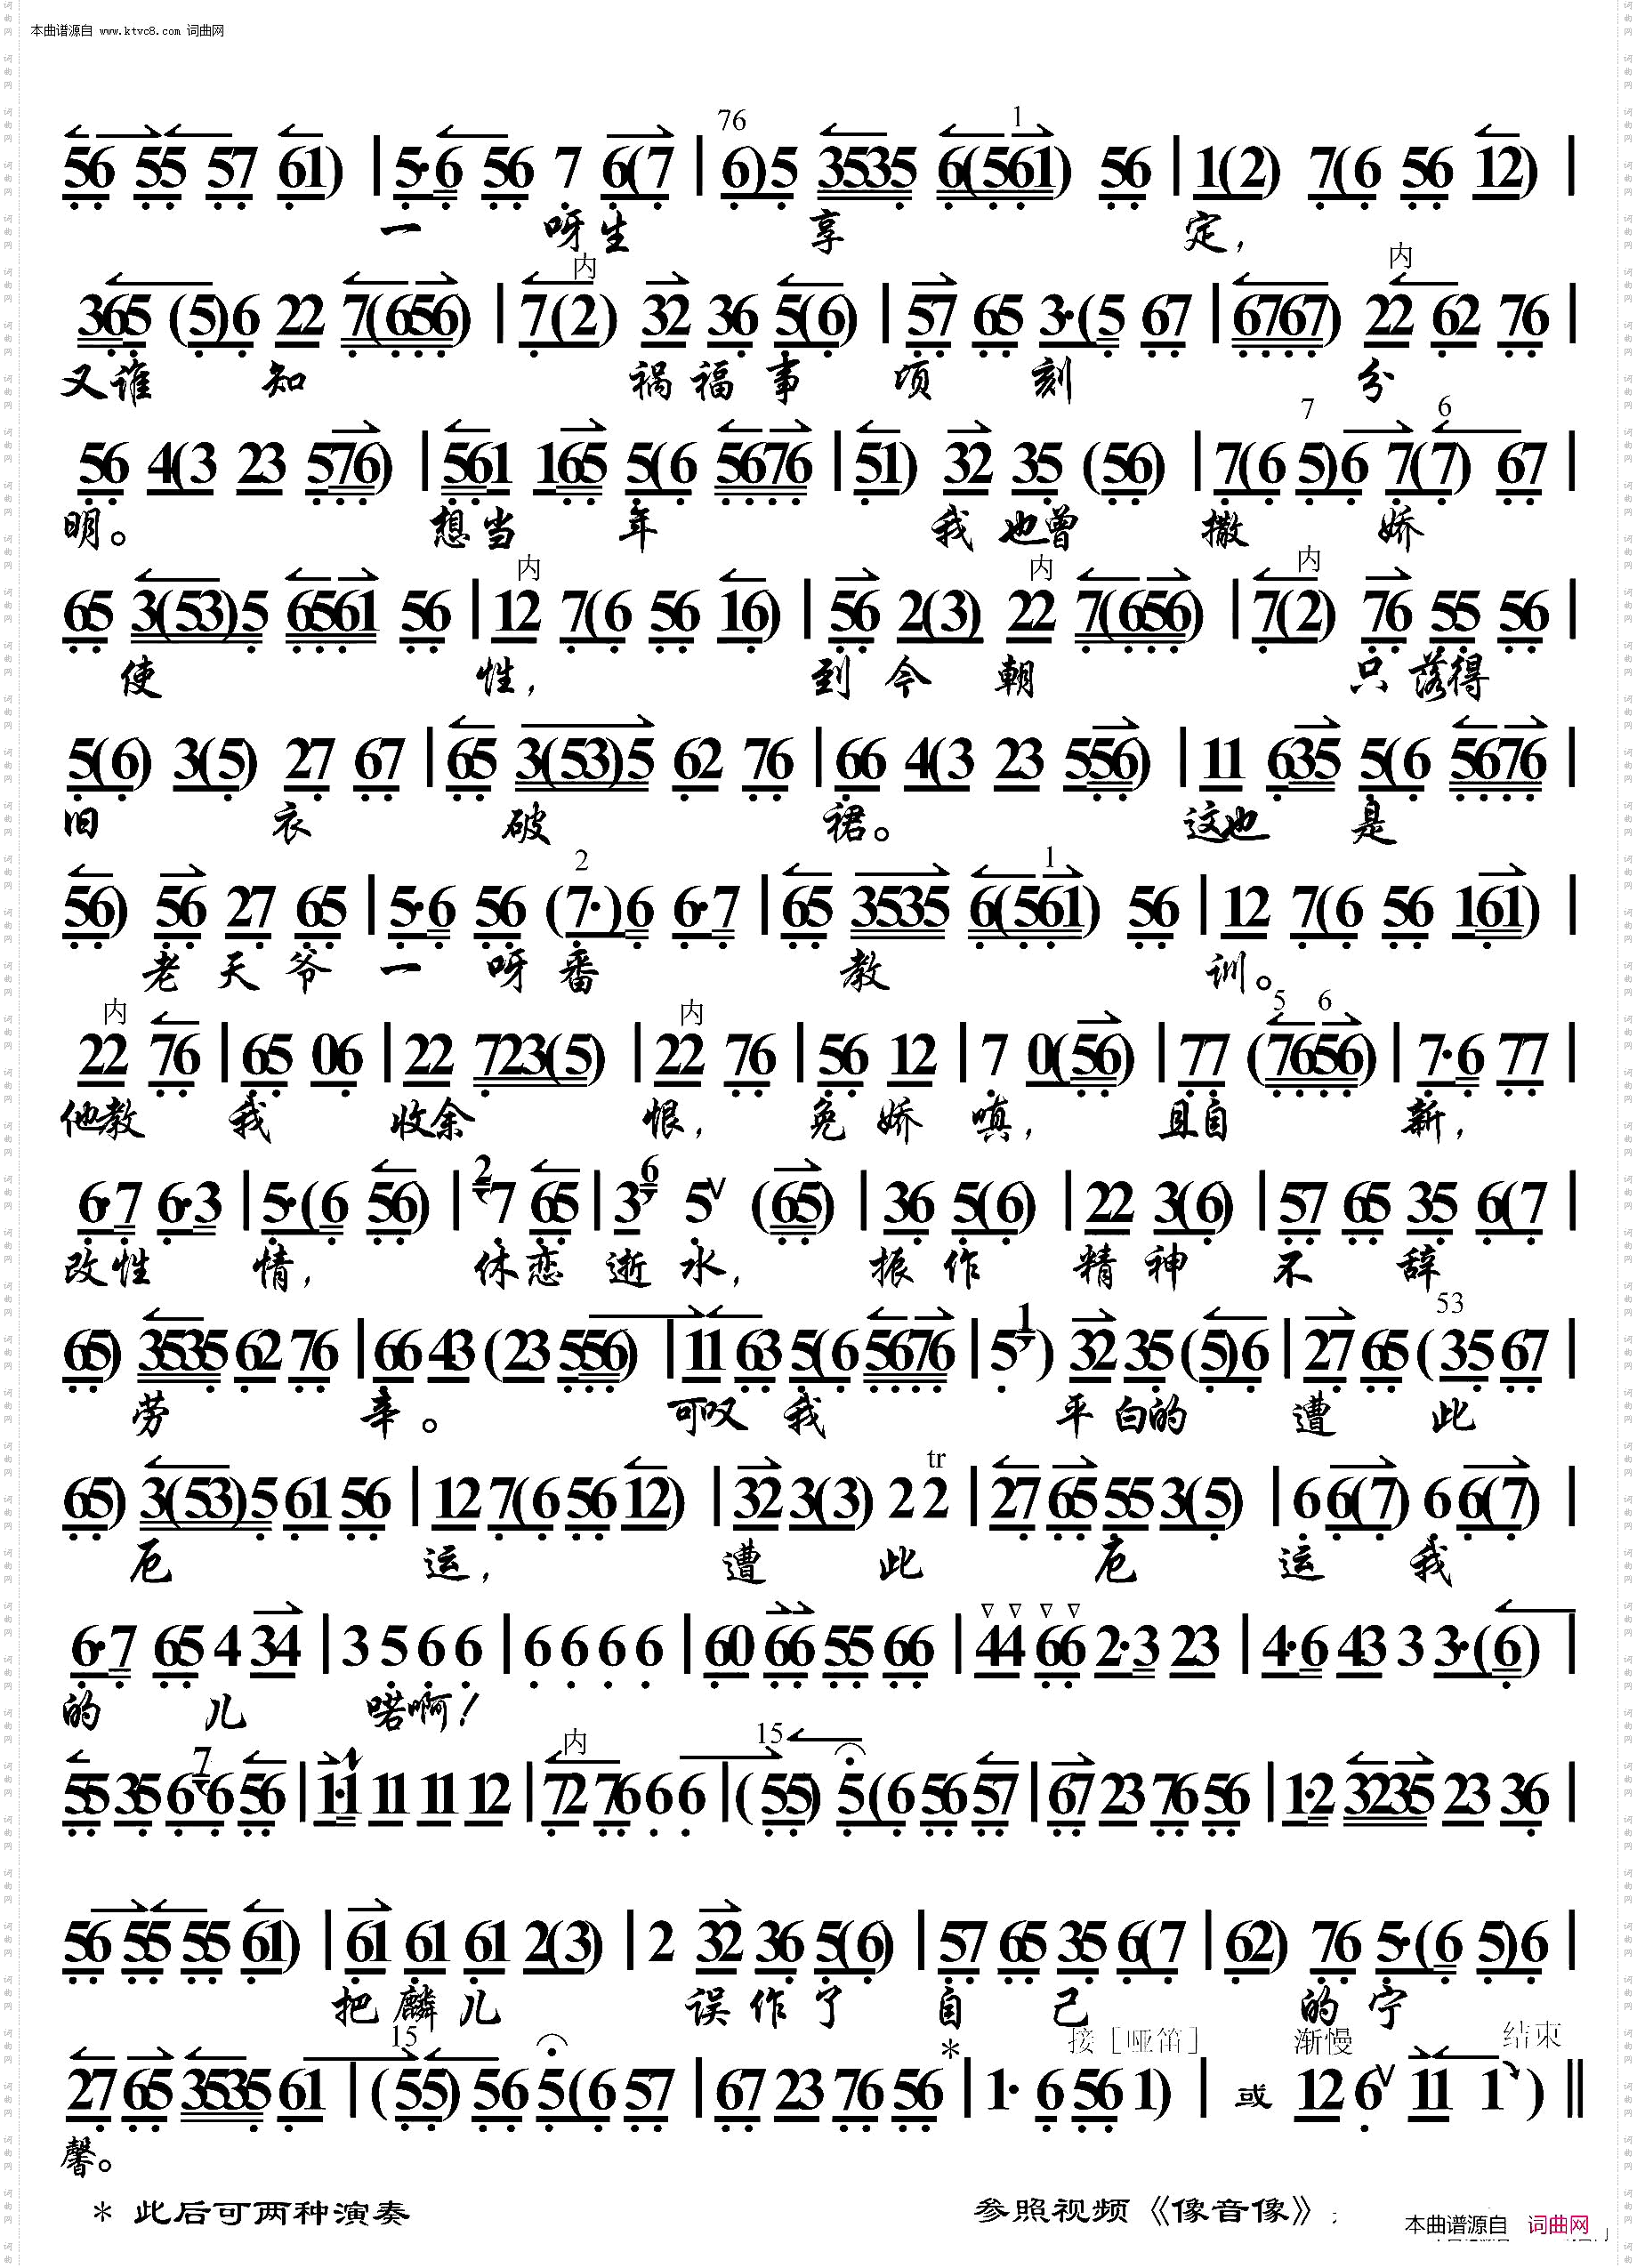 本曲谱源自 www.ktvc8.com 词曲网
76 1
56 55 57 61) | 5·6 56 7 6(7 | 6)5 3535 6(561) 56 | 1(2) 7(6 56 12) |
一 呀生 享 定,
内 内
365 (5)6 22 7(656) | 7(2) 32 36 5(6) | 57 65 3·(5 67 | 6767) 22 62 76 |
又谁 知 祸福事 顷 刻 分
7 6
56 4(3 23 576) | 561 165 5(6 5676 | 51) 32 35 (56) | 7(6 5)6 7(7) 67 |
明。 想当 年 我也曾 撒 娇
内 内 内
65 3(53)5 6561 56 | 12 7(6 56 16) | 56 2(3) 22 7(656) | 7(2) 76 55 56 |
使 性, 到今 朝 只落得
5(6) 3(5) 27 67 | 65 3(53)5 62 76 | 66 4(3 23 556) | 11 635 5(6 5676 |
旧 衣 破 裙。 这也 是
2 1
56) 56 27 65 | 5·6 56 (7·)6 6·7 | 65 3535 6(561) 56 | 12 7(6 56 161) |
老天爷一 呀番 教 训。
内 内 5 6
22 76 | 65 06 | 22 723(5) | 22 76 | 56 12 | 7 0(56) | 77 (7656) | 7·6 77 |
他教 我 收余 恨, 免娇嗔, 且自 新,
2 6
6·7 6·3 | 5·(6 56) | 7 65 | 3 5∨ (65) | 36 5(6) | 22 3(6) | 57 65 35 6(7 |
改性 情, 休恋逝水, 振作 精神 不 辞
1 53
65) 3535 62 76 | 66 43 (23 556) | 11 63 5(6 5676 | 5 ) 32 35 (5)6 | 27 65 (35 67 |
劳 辛。 可叹我 平白的 遭 此
tr
65) 3(53)5 61 56 | 12 7(6 56 12) | 32 3(3) 2 2 | 27 65 55 3(5) | 6 6(7) 6 6(7) |
厄 运, 遭 此 厄 运 我
6·7 65 4 34 | 3 5 6 6 | 6 6 6 6 | 60 66 55 66 | 44 66 2·3 23 | 4·6 43 3 3·(6) |
的 儿 喏啊!
7 1 内 15
55 35 6·6 56 | 1·1 11 11 12 | 72 76 6 6 | (55) 5(6 56 57 | 67 23 76 56 | 1·2 3235 23 36 |
56 55 55 61) | 61 61 61 2(3) | 2 32 36 5(6) | 57 65 35 6(7 | 62) 76 5·(6 5)6 |
把麟儿 误作了 自 己 的宁
15 * 接［哑笛］ 渐慢 结束
27 65 3535 61 | (55) 56 5(6 57 | 67 23 76 56 | 1· 6 56 1) | 或 12 6∨ 11 1 ) ‖
馨。
* 此后可两种演奏 参照视频《像音像》
本曲谱源自 词曲网